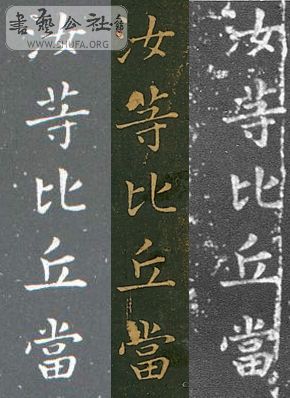 書藝公社
WWW.SHUFA.ORG
汝等比丘當
汝等比丘當
汝等比丘當